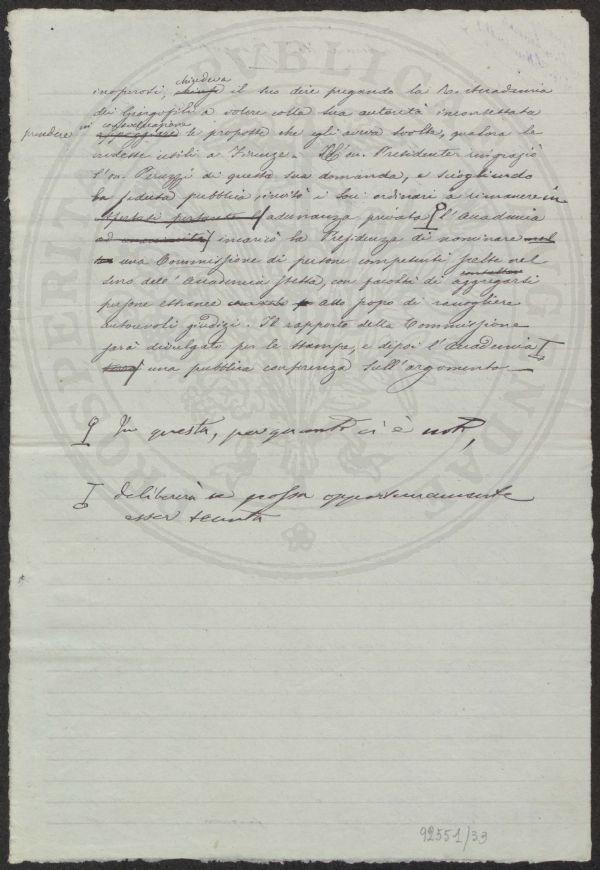 inoperosi, chiedeva il suo dire pregando la R. Accademia
dei Georgofili a volere colla sua autorità incontestata
prendere in considerazione le proposte che egli aveva svolta, qualora le
credesse utili a Firenze. Il on. Presidente ringraziò
l'on. Peruzzi di questa sua domanda, e sciogliendo
la seduta pubblica invitò i Soci ordinari a rimanere in
adunanza privata l'Accademia
incaricò la Presidenza di nominare
una Commissione di persone competenti scelte nel
seno dell'Accademia stessa, con facoltà di aggregarsi
persone estranee allo scopo di raccogliere
autorevoli giudizi. Il rapporto della Commissione
sarà divulgato per le stampe, e dipoi l'Accademia
una pubblica conferenza sull'argomento
In questa, per quanto ci è noto,
delibererà se possa opportunamente
esser tenuta
92551/33
PROSPERITATI PUBLICAE AUGENDAE